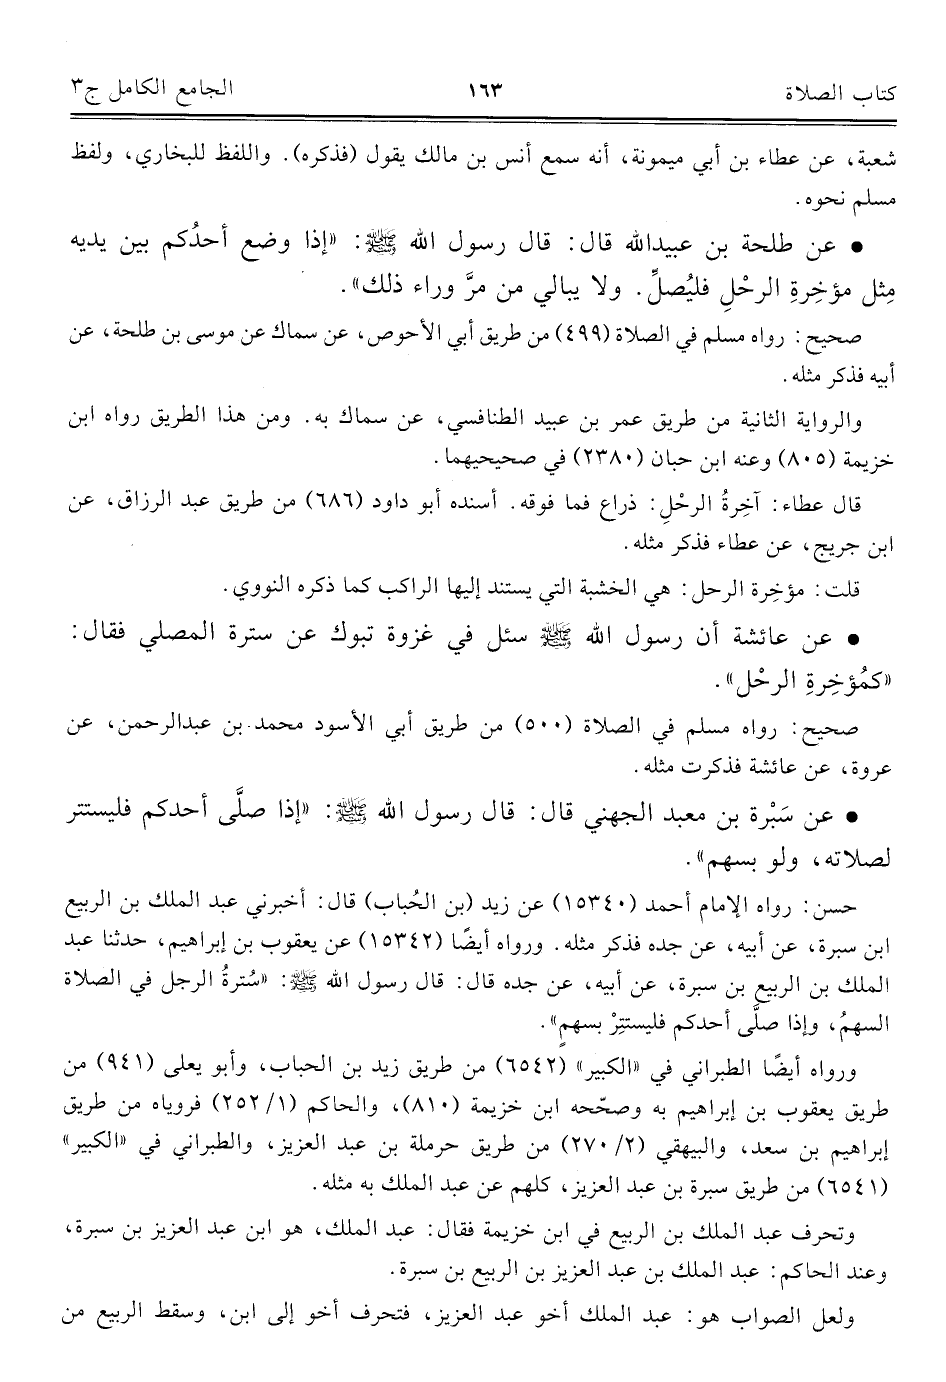 كتاب الصلاة ١٦٣ الجامع الكامل ج٣
شعبة، عن عطاء بن أبي ميمونة، أنه سمع أنس بن مالك يقول (فذكره). واللفظ للبخاري، ولفظ
مسلم نحوه.
• عن طلحة بن عبيدالله قال: قال رسول الله ﷺ: «إذا وضع أحدُكم بين يديه
مِثل مؤخِرةِ الرحْلِ فليُصلِّ. ولا يبالي من مرَّ وراء ذلك».
صحيح: رواه مسلم في الصلاة (٤٩٩) من طريق أبي الأحوص، عن سماك عن موسى بن طلحة، عن
أبيه فذكر مثله.
والرواية الثانية من طريق عمر بن عبيد الطنافسي، عن سماك به. ومن هذا الطريق رواه ابن
خزيمة (٨٠٥) وعنه ابن حبان (٢٣٨٠) في صحيحيهما.
قال عطاء: آخِرةُ الرحْلِ: ذراع فما فوقه. أسنده أبو داود (٦٨٦) من طريق عبد الرزاق، عن
ابن جريج، عن عطاء فذكر مثله.
قلت: مؤخِرة الرحل: هي الخشبة التي يستند إليها الراكب كما ذكره النووي.
• عن عائشة أن رسول الله ﷺ سئل في غزوة تبوك عن سترة المصلي فقال:
«كمُؤخِرةِ الرحْل».
صحيح: رواه مسلم في الصلاة (٥٠٠) من طريق أبي الأسود محمد بن عبدالرحمن، عن
عروة، عن عائشة فذكرت مثله.
• عن سَبْرة بن معبد الجهني قال: قال رسول الله ﷺ: «إذا صلَّى أحدكم فليستتر
لصلاته، ولو بسهم».
حسن: رواه الإمام أحمد (١٥٣٤٠) عن زيد (بن الحُباب) قال: أخبرني عبد الملك بن الربيع
ابن سبرة، عن أبيه، عن جده فذكر مثله. ورواه أيضًا (١٥٣٤٢) عن يعقوب بن إبراهيم، حدثنا عبد
الملك بن الربيع بن سبرة، عن أبيه، عن جده قال: قال رسول الله ﷺ: «سُترةُ الرجل في الصلاة
السهمُ، وإذا صلَّى أحدكم فليستتِرْ بسهمٍ».
ورواه أيضًا الطبراني في «الكبير» (٦٥٤٢) من طريق زيد بن الحباب، وأبو يعلى (٩٤١) من
طريق يعقوب بن إبراهيم به وصحّحه ابن خزيمة (٨١٠)، والحاكم (٢٥٢/١) فروياه من طريق
إبراهيم بن سعد، والبيهقي (٢٧٠/٢) من طريق حرملة بن عبد العزيز، والطبراني في «الكبير»
(٦٥٤١) من طريق سبرة بن عبد العزيز، كلهم عن عبد الملك به مثله.
وتحرف عبد الملك بن الربيع في ابن خزيمة فقال: عبد الملك، هو ابن عبد العزيز بن سبرة،
وعند الحاكم: عبد الملك بن عبد العزيز بن الربيع بن سبرة.
ولعل الصواب هو: عبد الملك أخو عبد العزيز، فتحرف أخو إلى ابن، وسقط الربيع من